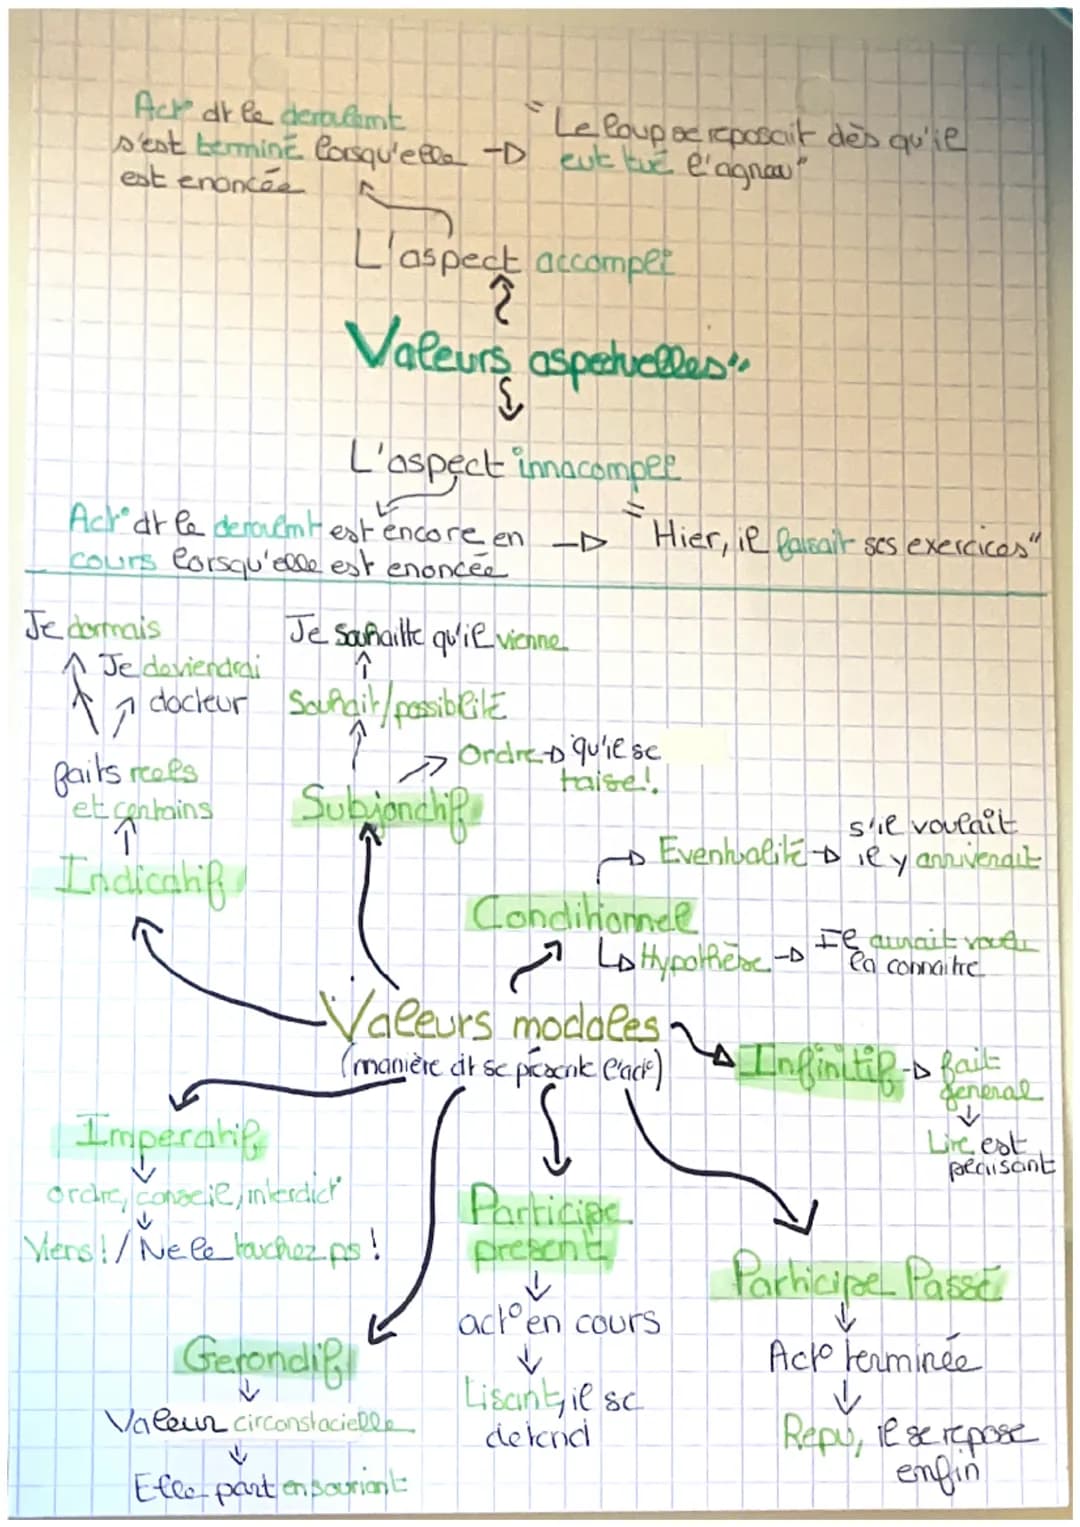 Act° dt le deroulemt
s'est terminé lorsqu'elle
est enoncée
"Le loup se reposait dès qu'il
eut tué l'agnau"
L'aspect accompli
Valeurs aspectuelles
L'aspect innacompli
Act° dt le deroulmt est encore en
cours lorsqu'elle est enoncée
"Hier, il faisait ses exercices"
Je dormais
Je deviendrai
docteur
faits reels
et certains
Indicatif
Je souhaitte qu'il vienne
Souhait/possiblité
Ordre qu'il se
taise!
Subjonctif
Eventualité
s'il voulait
il y arriverait
Conditionnel
Hypothèse
Il aurait voulu
la connaitre
Valeurs modales
(manière dt se présente l'act°)
Infinitif
fait
general
Lire est
Imperatif
ordre, conseil, interdict°
Viens! / Ne le touchez ps!
Participe
present
act° en cours
Lisant, il se
detend
Participe Passé
Act° terminée
Repu, il se repose
enfin
Gerondif
Valeur circonstacielle
Elle part en souriant